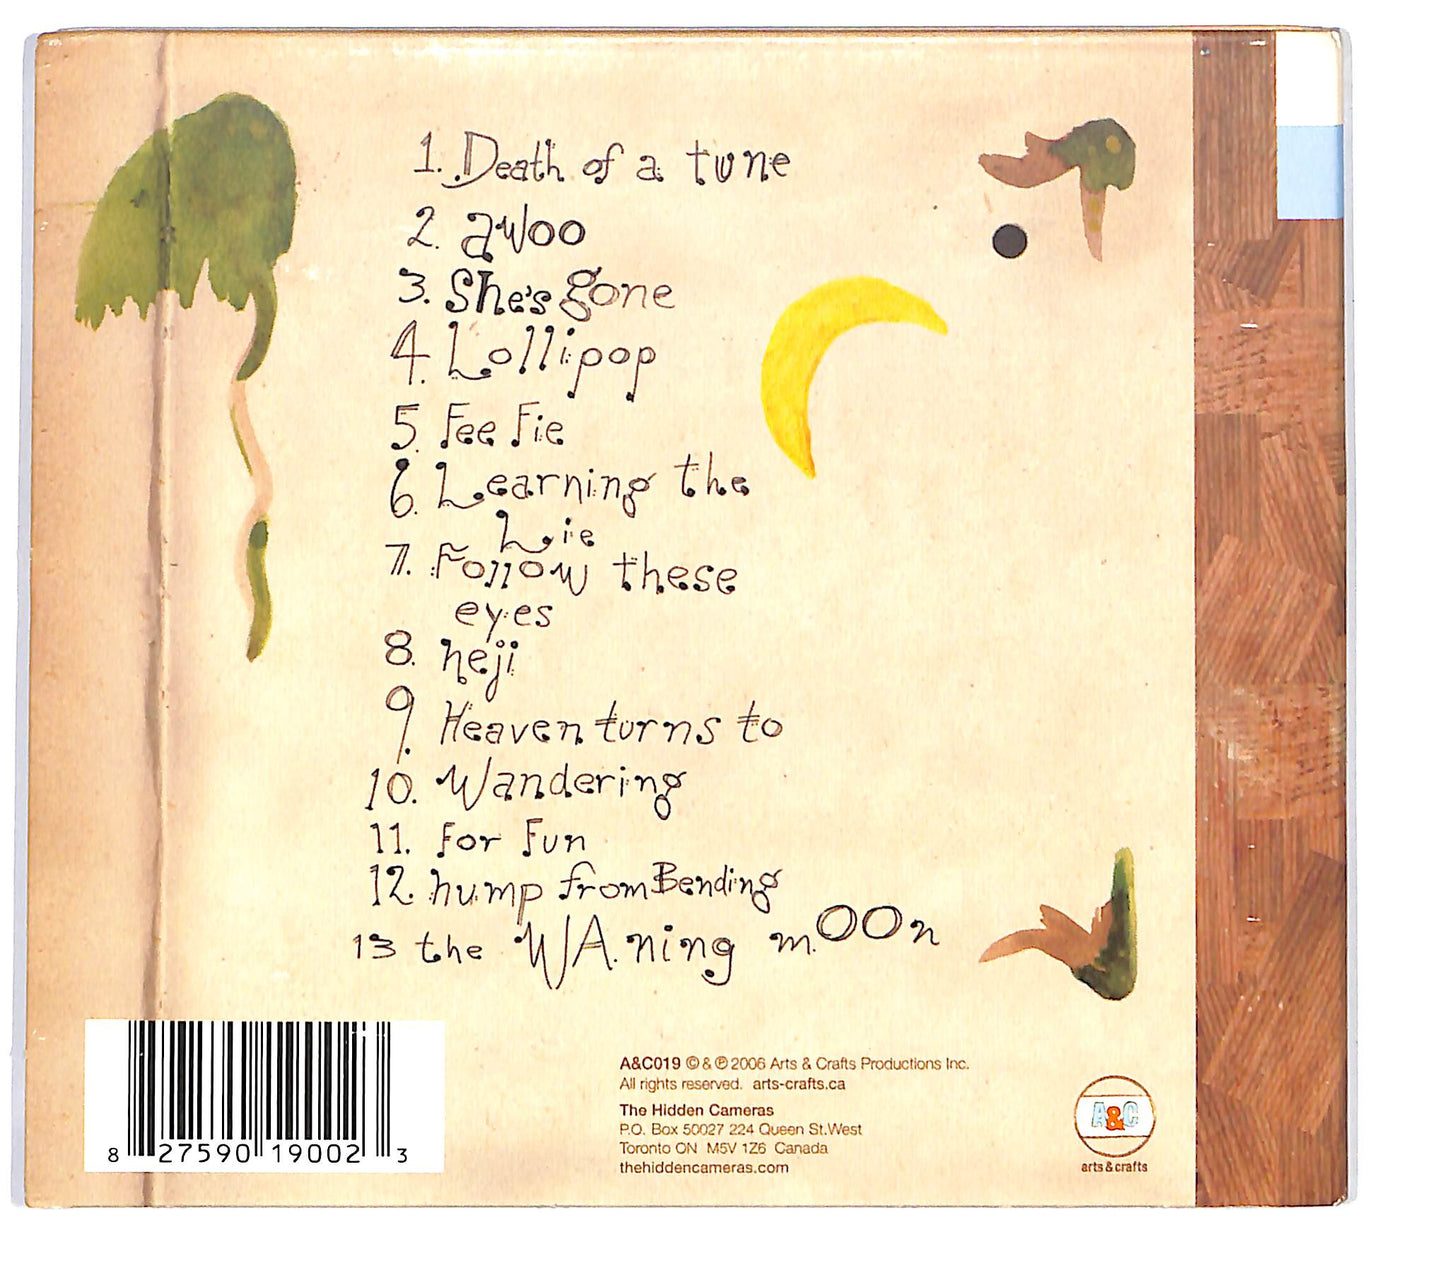 1. Death of a tune
2. awoo
3. She's gone
4. Lollipop
5. Fee Fie
6. Learning the
Lie
7. Follow these
eyes
8. heji
9. Heaven turns to
10. Wandering
11. For Fun
12. hump from Bending
13 the WAning mOOn
A&C019 © & ℗ 2006 Arts & Crafts Productions Inc.
All rights reserved. arts-crafts.ca
The Hidden Cameras
P.O. Box 50027 224 Queen St.West
Toronto ON M5V 1Z6 Canada
thehiddencameras.com
A&C
arts & crafts
8 27590 19002 3